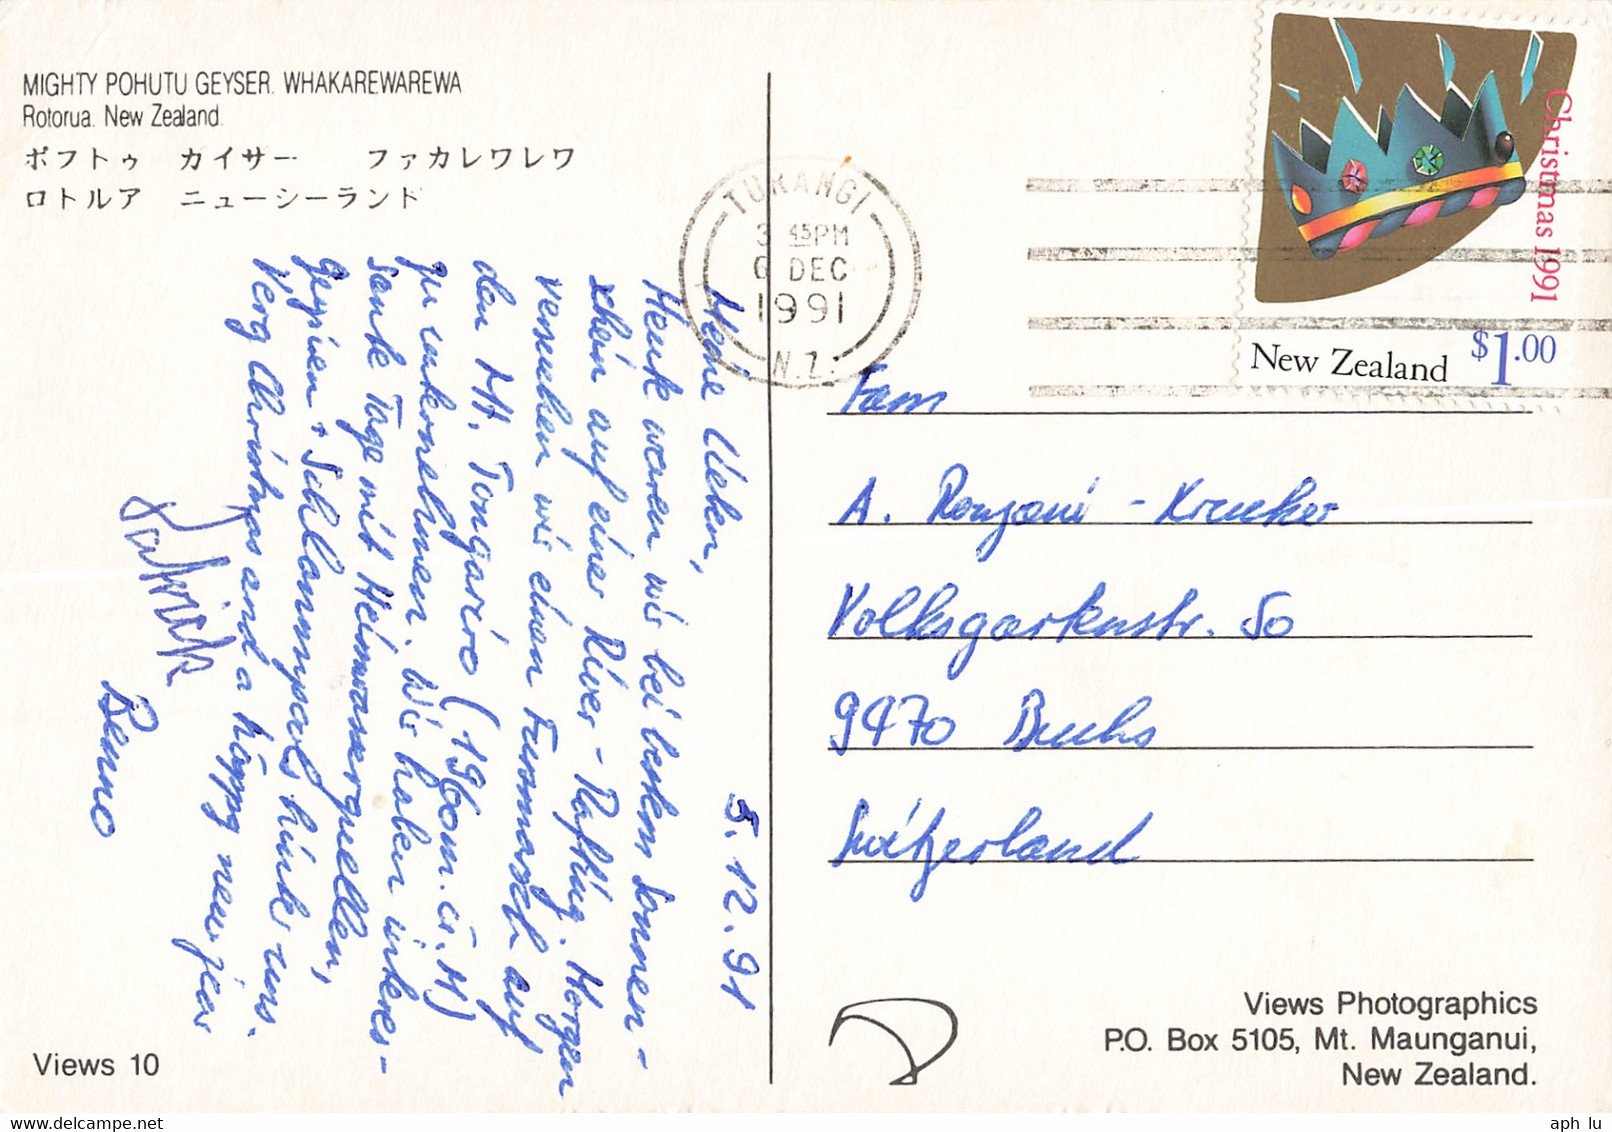 MIGHTY POHUTU GEYSER. WHAKAREWAREWA
Rotorua. New Zealand.
ポフトゥ カイサー ファカレワレワ
ロトルア ニューシーランド
5.12.91
Meine Lieben,
Heute waren wir bei bestem Sonnen-
schein auf einer River-Rafting. Morgen
versuchen wir einen Fussmarsch auf
den Mt. Tongariro (1960m.ü.M)
zu unternehmen. Wir haben interes-
sante Tage mit Heisswasserquellen,
Geysiren + Schlammpools hinter uns.
Very Christmas and a happy new year
Benno
Views 10
TURANGI
3 45PM
6 DEC
1991
N.Z.
Christmas 1991
New Zealand $1.00
Fam
A. Ronzani - Kreuker
Volksgartenstr. 50
9470 Buchs
Switzerland
Views Photographics
P.O. Box 5105, Mt. Maunganui,
New Zealand.
aph lu